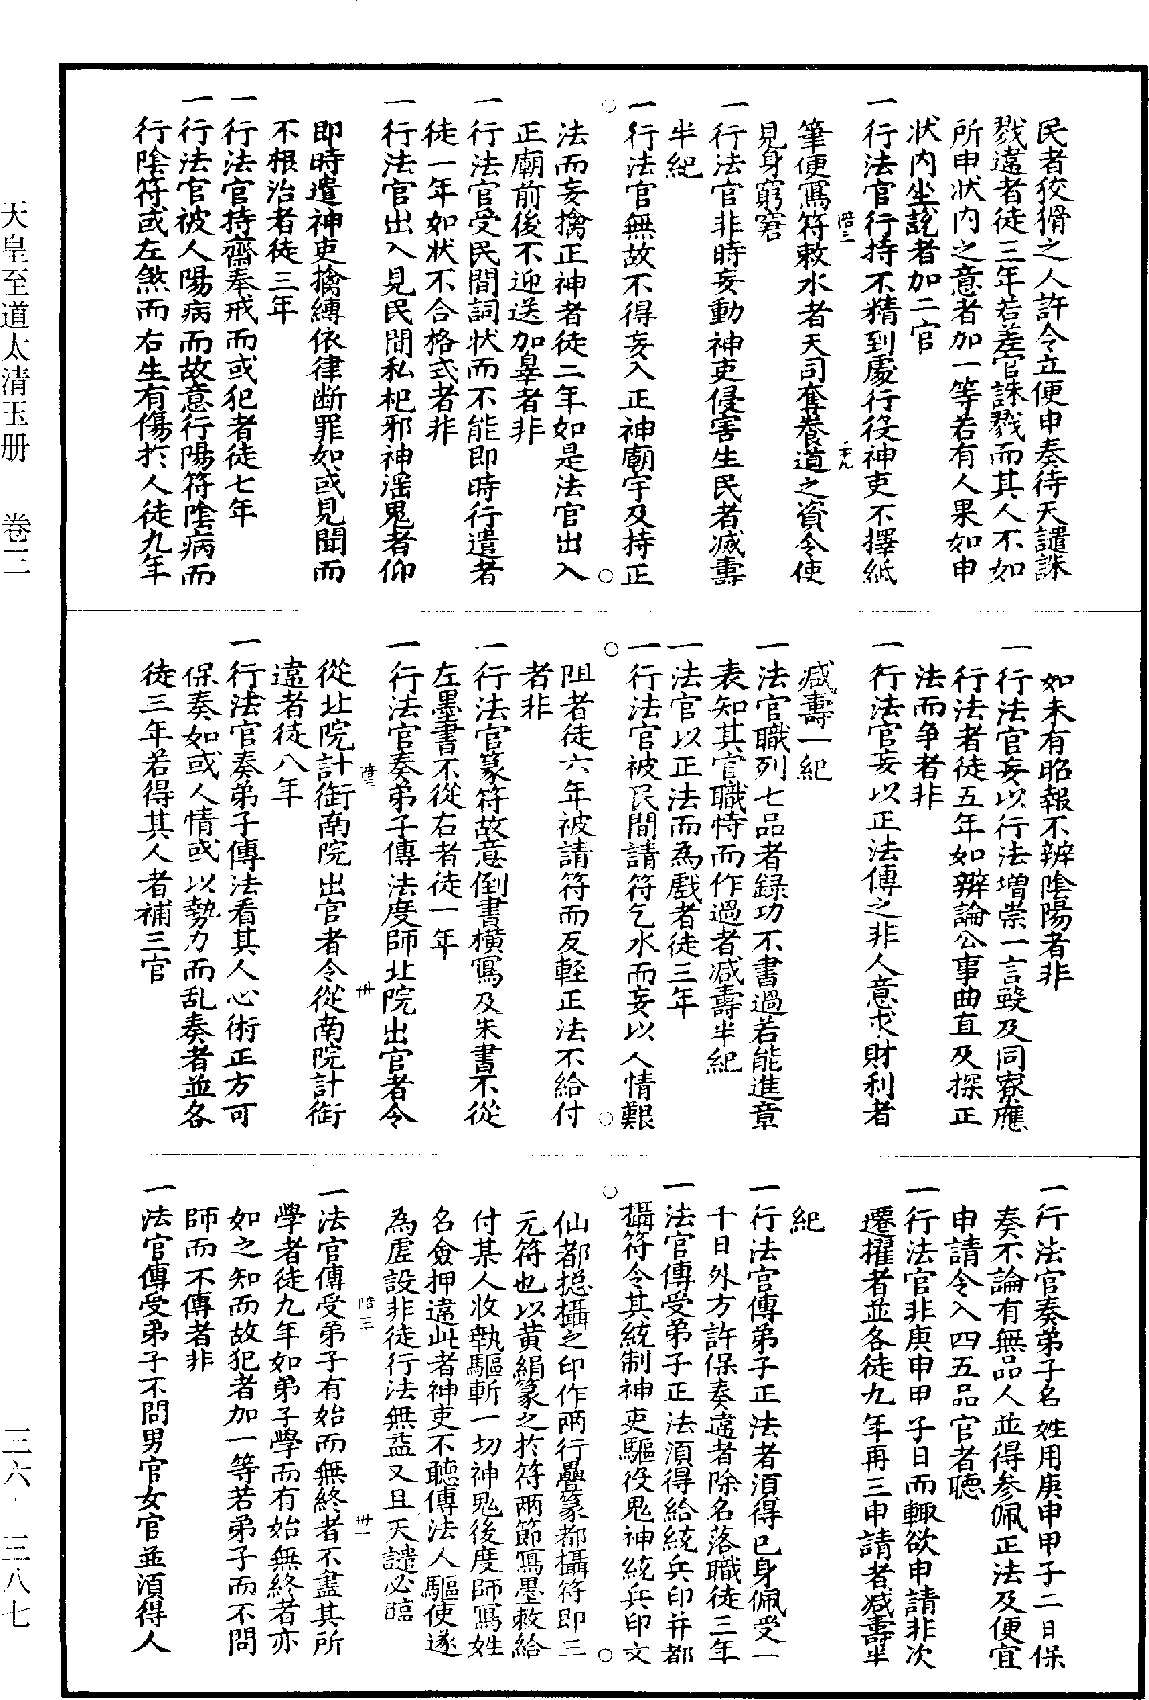 民者狡猾之人許令立便申奏待天譴誅
戮違者徒三年若差官誅戮而其人不如
所申狀内之意者加一等若有人果如申
狀内坐説者加二官
一行法官行持不精到處行役神吏不擇紙
筆便寫符敕水者天司奪養道之資令使
見身窮窘
一行法官非時妄動神吏侵害生民者减壽
半紀
一行法官無故不得妄入正神廟宇及持正
法而妄擒正神者徒二年如是法官出入
正廟前後不迎送加辠者非
一行法官受民間詞狀而不能即時行遣者
徒一年如狀不合格式者非
一行法官出入見民間私祀邪神滛鬼者仰
即時遣神吏擒縛依律断罪如或見聞而
不根治者徒三年
一行法官持齋奉戒而或犯者徒七年
一行法官被人陽病而故意行陽符陰病而
行陰符或左煞而右生有傷於人徒九年
如未有昭報不辨陰陽者非
一行法官妄以行法增崇一言毀及同寮應
行法者徒五年如辨論公事曲直及探正
法而争者非
一行法官妄以正法傳之非人意求財利者
减壽一紀
一法官職列七品者録功不書過若能進章
表知其官職恃而作過者减壽半紀
一法官以正法而為戲者徒三年
一行法官被民間請符乞水而妄以人情艱
阻者徒六年被請符而反輕正法不給付
者非
一行法官篆符故意倒書横寫及朱書不從
左墨書不從右者徒一年
一行法官奏弟子傳法度師北院出官者令
從北院計銜南院出官者令從南院計銜
違者徒八年
一行法官奏弟子傳法看其人心術正方可
保奏如或人情或以勢力而乱奏者並各
徒三年若得其人者補三官
一行法官奏弟子名姓用庚申甲子二日保
奏不論有無品人並得参佩正法及便宜
申請令入四五品官者聽
一行法官非庚申甲子日而輒欲申請非次
遷擢者並各徒九年再三申請者减壽半
紀
一行法官傳弟子正法者須得已身佩受一
千日外方許保奏違者除名落職徒三年
一法官傳受弟子正法須得給統兵印并都
攝符令其統制神吏驅役鬼神統兵印文
仙都揔攝之印作兩行疊篆都攝符即三
元符也以黄絹篆之於符兩節寫墨敕給
付某人收執驅斬一切神鬼後度師寫姓
名僉押違此者神吏不聽傳法人驅使遂
為虛設非徒行法無益又且天譴必臨
一法官傳受弟子有始而無終者不盡其所
學者徒九年如弟子學而有始無終者亦
如之知而故犯者加一等若弟子而不問
師而不傳者非
一法官傳受弟子不問男官女官並須得人
天皇至道太清玉册　卷三
三六·三八七